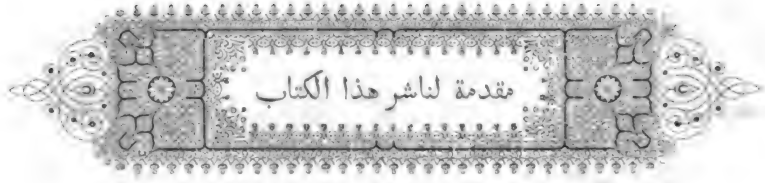 مقدمة لناشر هذا الكتاب